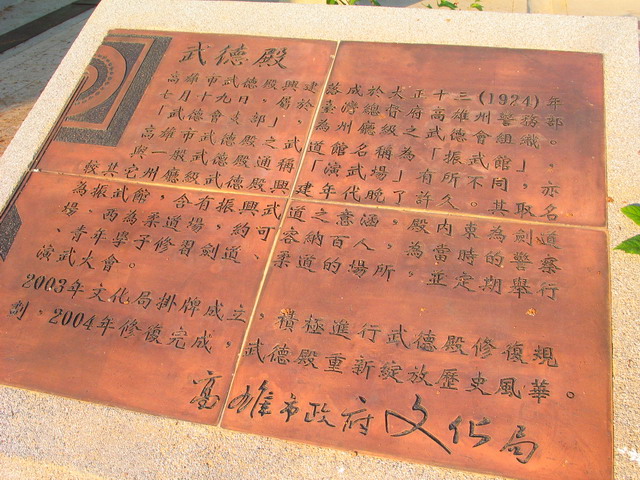 武德殿
高雄市武德殿興建落成於大正十三(1924)年
七月十九日，屬於臺灣總督府高雄州警務部
「武德會支部」，為州廳級之武德會組織。
高雄市武德殿之武道館名稱為「振武館」，
與一般武德殿通稱「演武場」有所不同，亦
較其它州廳級武德殿興建年代晚了許久。其取名
為振武館，含有振興武道之意涵，殿內東為劍道
場、西為柔道場，約可容納百人，為當時的警察
、青年學子修習劍道、柔道的場所，並定期舉行
演武大會。
2003年文化局掛牌成立，積極進行武德殿修復規
劃，2004年修復完成，武德殿重新綻放歷史風華。
高雄市政府文化局